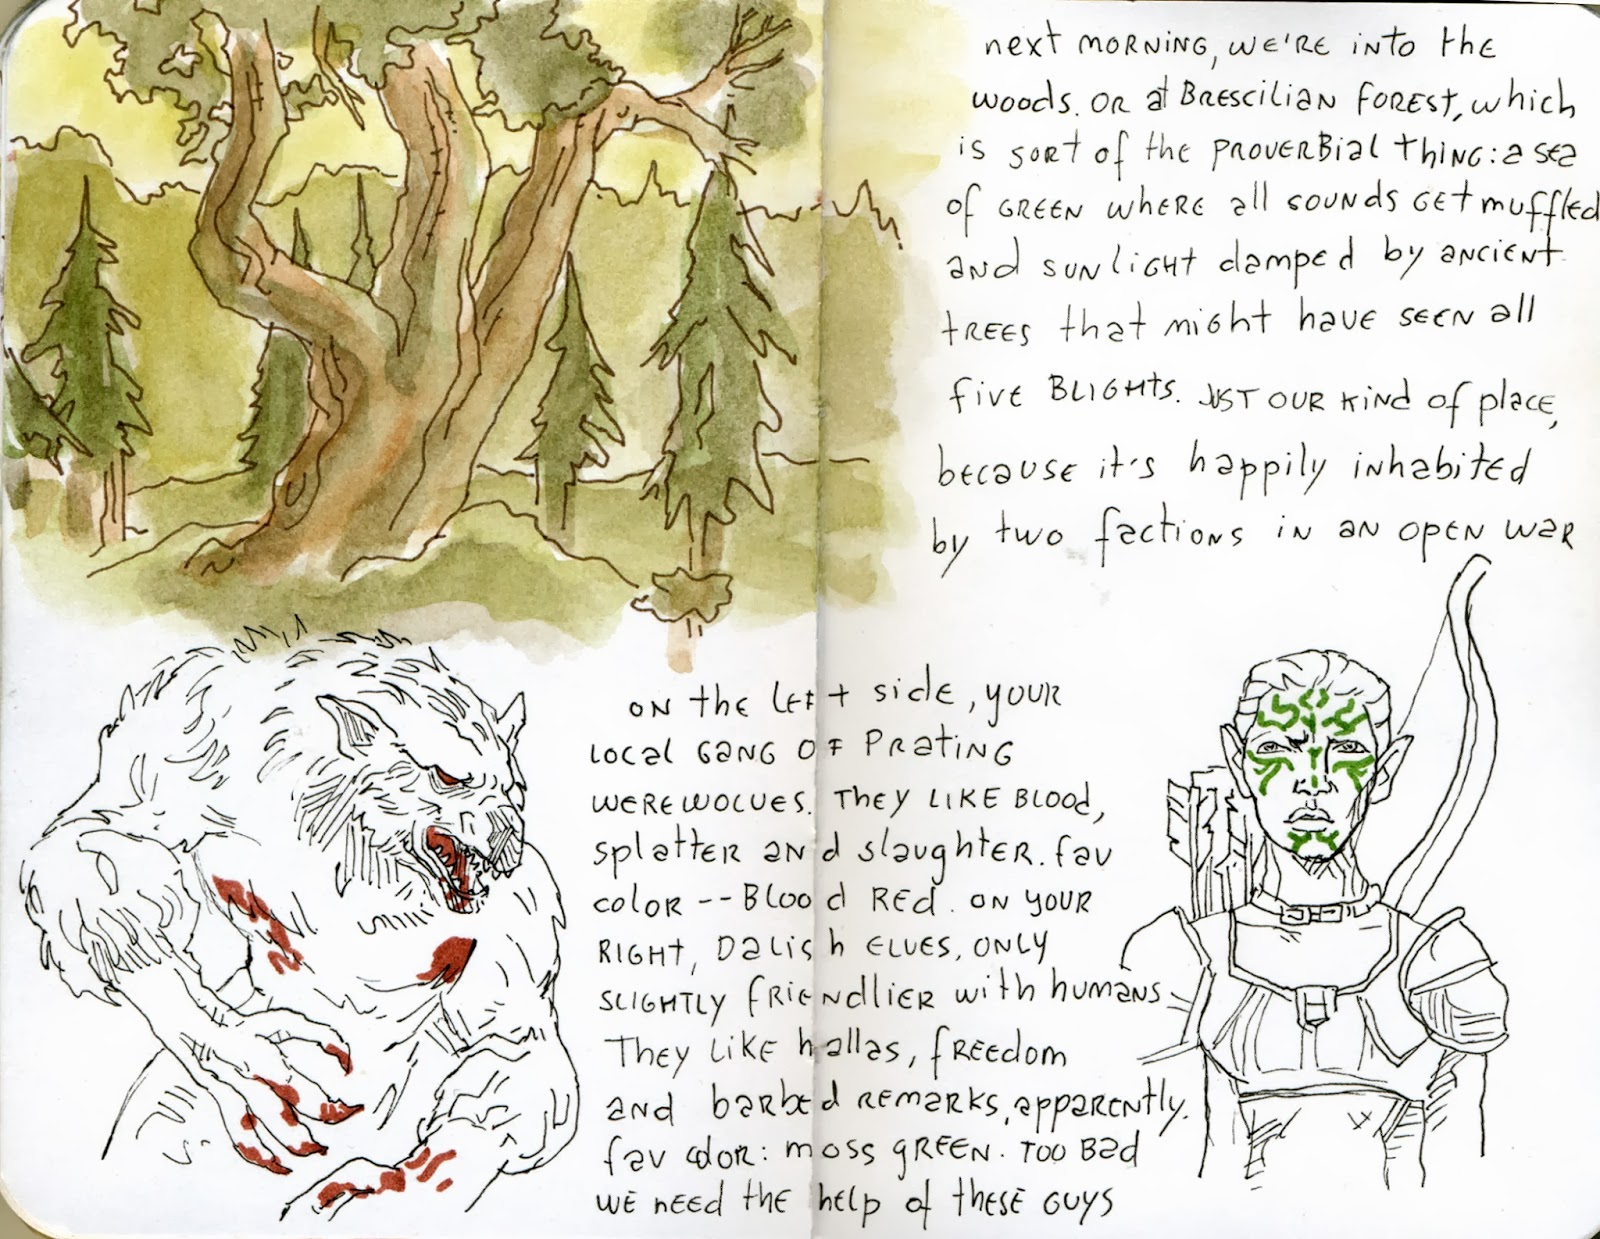 next MORNING, WE'RE into the
woods. OR at BRESCILIAN FOREST, which
is sort of the PROVERBial thING: a sea
of GREEN WHERE all SOUNDS GEt muffled
and SUNLIGHT damped by ancient
TREES that might have SEEN all
five BLIGHTS. JUST OUR KIND of place,
because it's happily inhabited
by two factions in an OPEN WAR
ON the LEFt side, YOUR
LOCal GANG OF PRatiNG
WEREWOLVES. THEY LIKE BLOOD,
splattER AND slaughtER. fav
coloR -- BLOOD RED. ON YOUR
RIGHT, Dalish ELVES, ONLY
SLIGHTLY fRIENdlIER with humans
They LIKE hallas, fREEdom
AND barbEd REMARKS, apparENtly.
fav coloR: moss gREEN. TOO Bad
WE nEEd the hElp of thESE GUYS